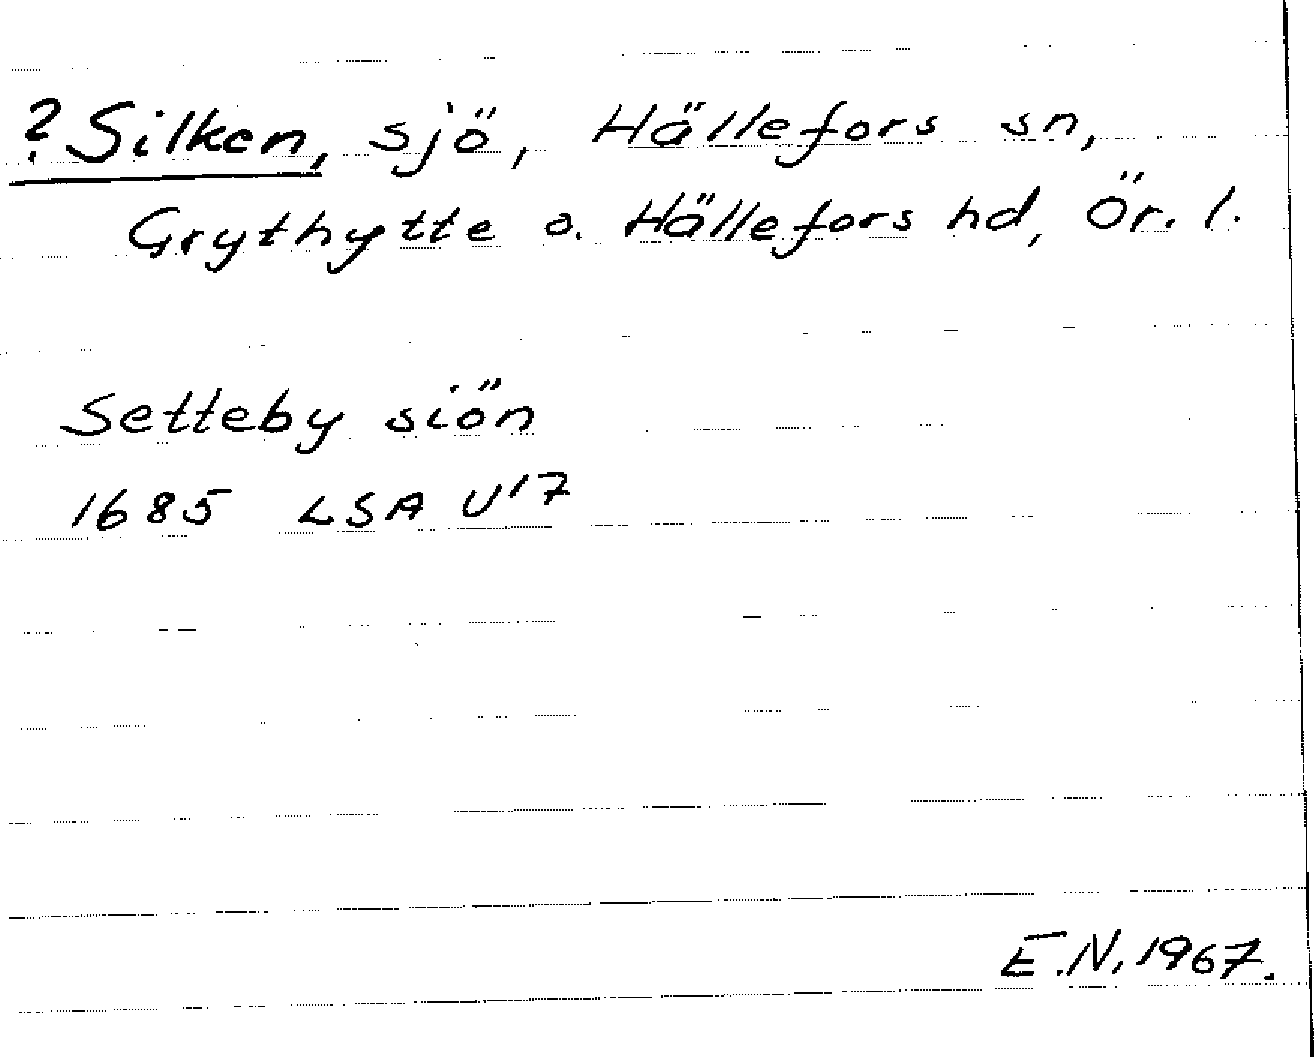 ? Silken, sjö, Hällefors sn,
Grythytte o. Hällefors hd, Ör. l.
Setteby siön
1685 LSA U17
E.N. 1967.